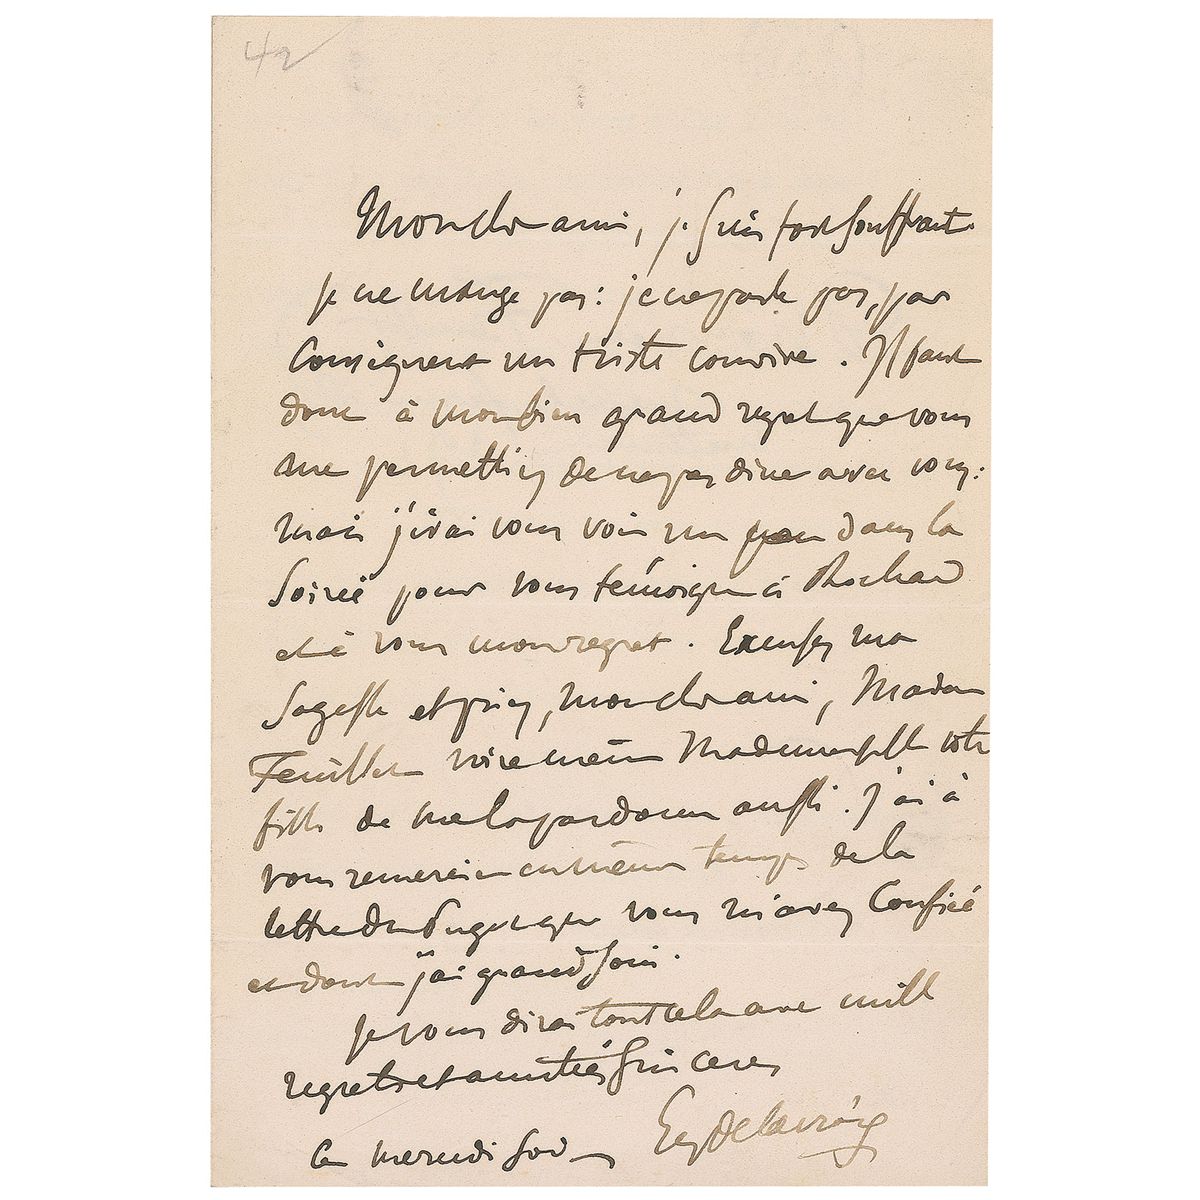 42
Mon cher ami, je suis fort souffrant.
je ne mange pas: je ne parle pas, par
conséquent un triste convive. Il faut
donc à mon bien grand regret que vous
me permettiez de ne pas dîner avec vous:
mais j'irai vous voir un peu dans la
soirée pour vous témoigner à
et à vous mon regret. Excusez ma
sagesse et priez, mon cher ami, Madame
Feuillet voire même Mademoiselle votre
fille de me la pardonner aussi. J'ai à
vous remercier en même temps de la
lettre du Puget que vous m'avez confiée
et dont j'ai grand soin.
Je vous dirai tout cela avec mille
regrets et amitiés sincères
Eug Delacroix
Ce mercredi soir